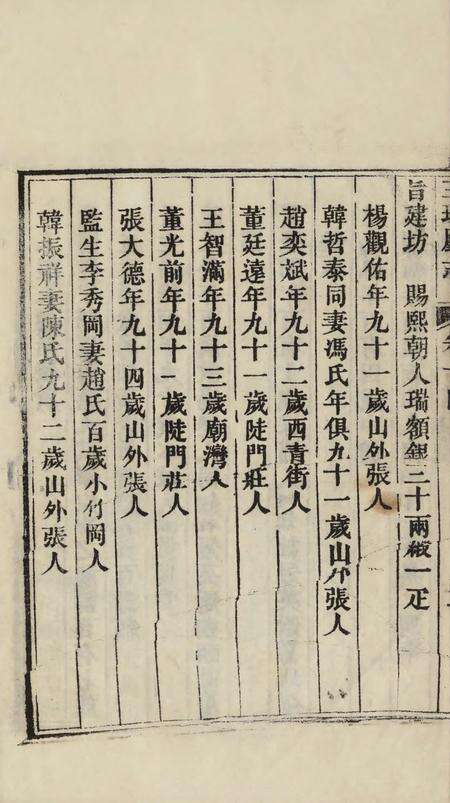 旨建坊　賜熙朝人瑞額銀三十兩緞一疋
楊觀佑年九十一歲山外張人
韓哲泰同妻馮氏年俱九十一歲山外張人
趙奕斌年九十二歲西青街人
董廷遠年九十一歲陡門莊人
王智滿年九十三歲廟灣人
董光前年九十一歲陡門莊人
張大德年九十四歲山外張人
監生李秀岡妻趙氏百歲小竹岡人
韓振祥妻陳氏九十二歲山外張人